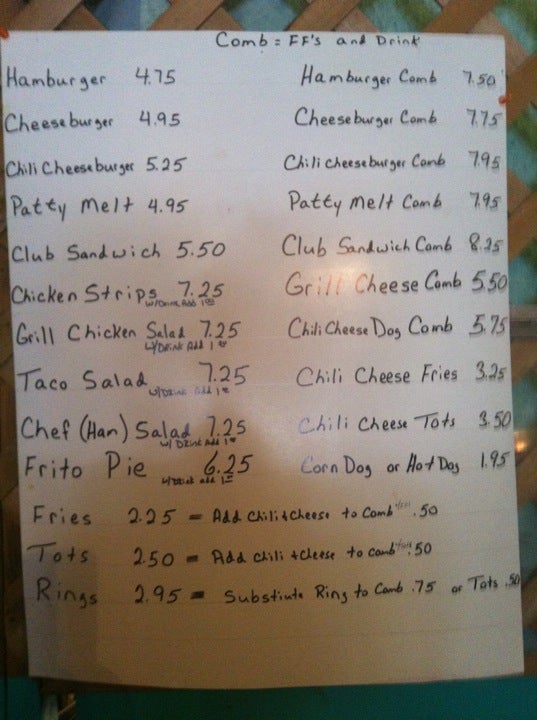 Comb = FF's and Drink
Hamburger 4.75
Hamburger Comb 7.50
Cheeseburger 4.95
Cheeseburger Comb 7.75
Chili Cheeseburger 5.25
Chili cheeseburger Comb 7.95
Patty Melt 4.95
Patty Melt Comb 7.95
Club Sandwich 5.50
Club Sandwich Comb 8.25
Chicken Strips 7.25
w/Drink Add 1
Grill Cheese Comb 5.50
Grill Chicken Salad 7.25
w/Drink Add 1
Chili Cheese Dog Comb 5.75
Taco Salad 7.25
w/Drink add 1
Chili Cheese Fries 3.25
Chef (Ham) Salad 7.25
w/Drink Add 1
Chili Cheese Tots 3.50
Frito Pie 6.25
w/Drink add 1
Corn Dog or Hot Dog 1.95
Fries 2.25 = Add Chili & Cheese to Comb .50
Tots 2.50 = Add Chili & Cheese to comb .50
Rings 2.95 = Substiute Ring to Comb .75 or Tots .50